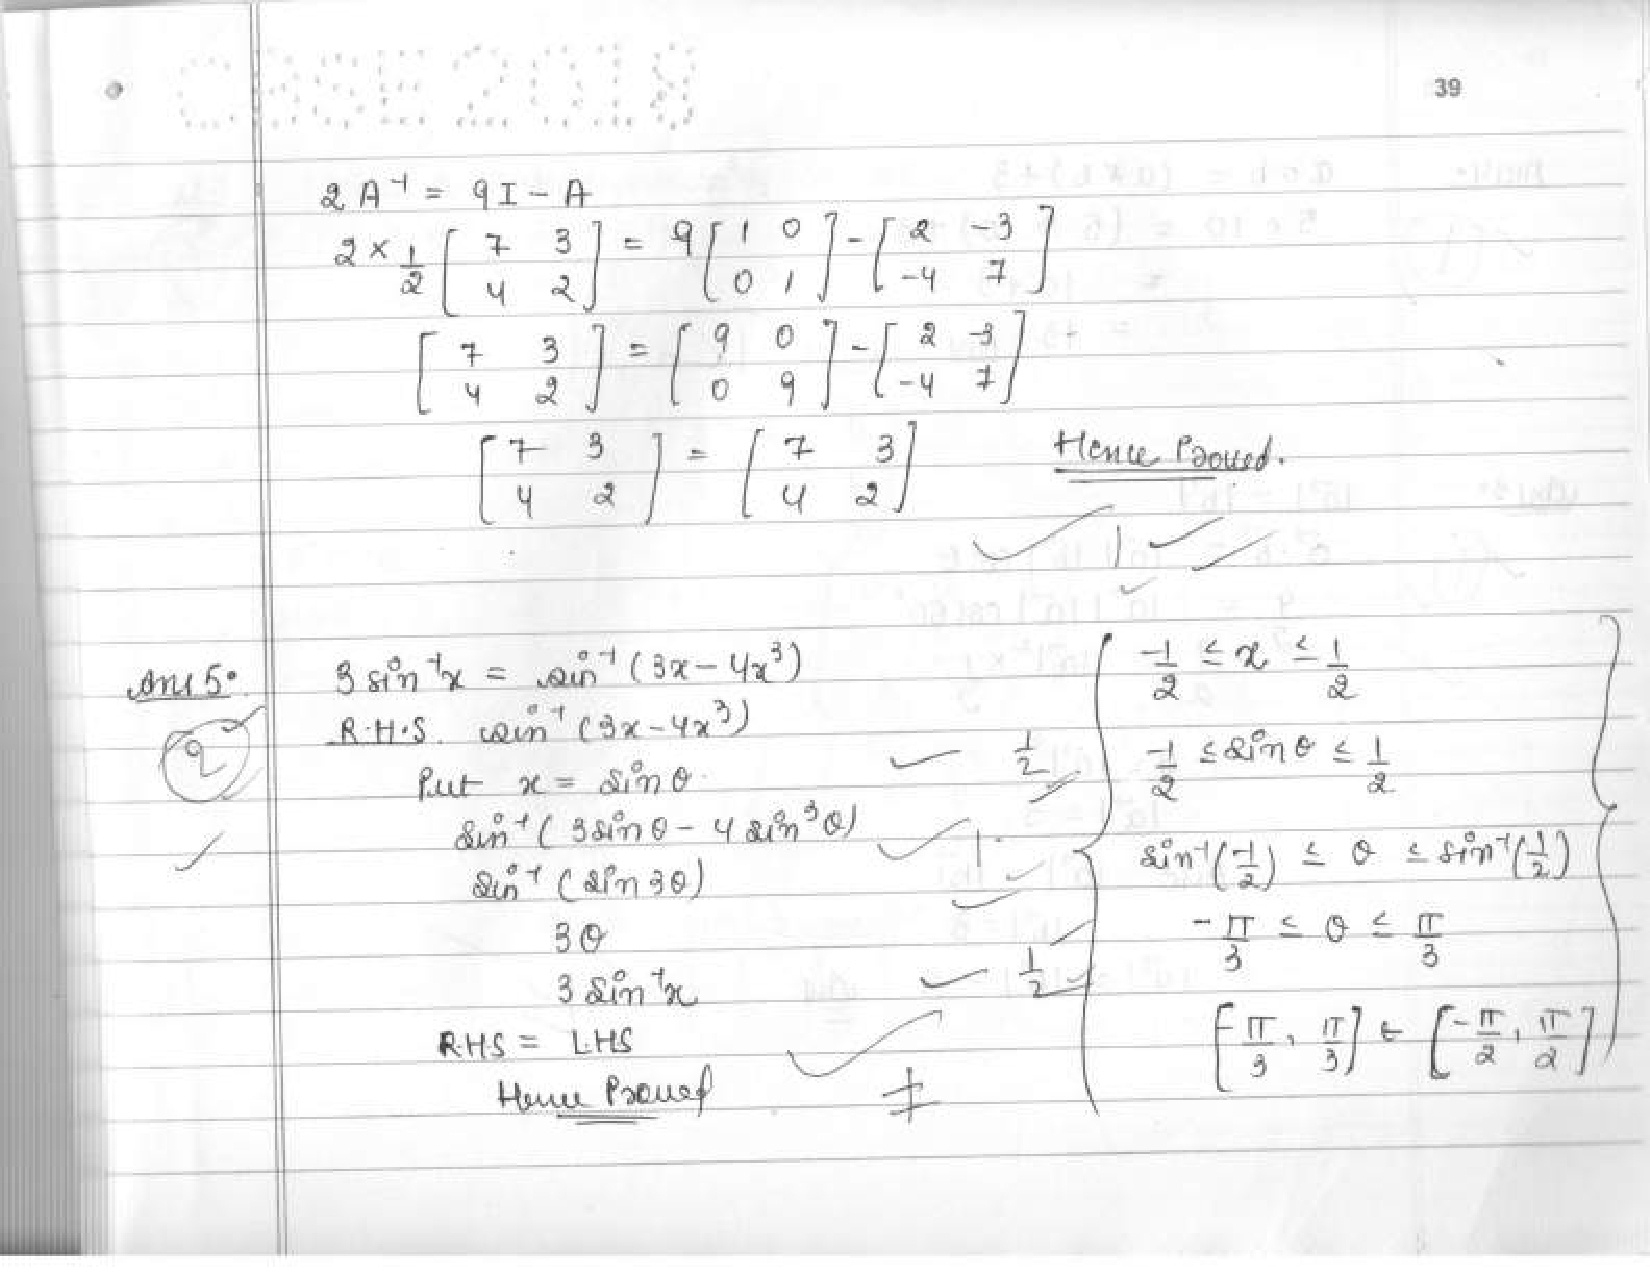 CBSE 2018
39
2A⁻¹ = 9I - A
2 × 1/2 [7 3; 4 2] = 9 [1 0; 0 1] - [2 -3; -4 7]
[7 3; 4 2] = [9 0; 0 9] - [2 -3; -4 7]
[7 3; 4 2] = [7 3; 4 2] Hence Proved.
1
Ans 5.
2
3 sin⁻¹x = sin⁻¹ (3x - 4x³)
R.H.S. sin⁻¹ (3x - 4x³)
Put x = sin θ 1/2
sin⁻¹ (3 sin θ - 4 sin³ θ) 1
sin⁻¹ (sin 3θ)
3θ
3 sin⁻¹x 1/2
RHS = LHS
Hence Proved
-1/2 ≤ x ≤ 1/2
-1/2 ≤ sin θ ≤ 1/2
sin⁻¹(-1/2) ≤ θ ≤ sin⁻¹(1/2)
-π/3 ≤ θ ≤ π/3
[-π/3, π/3] ∈ [-π/2, π/2]